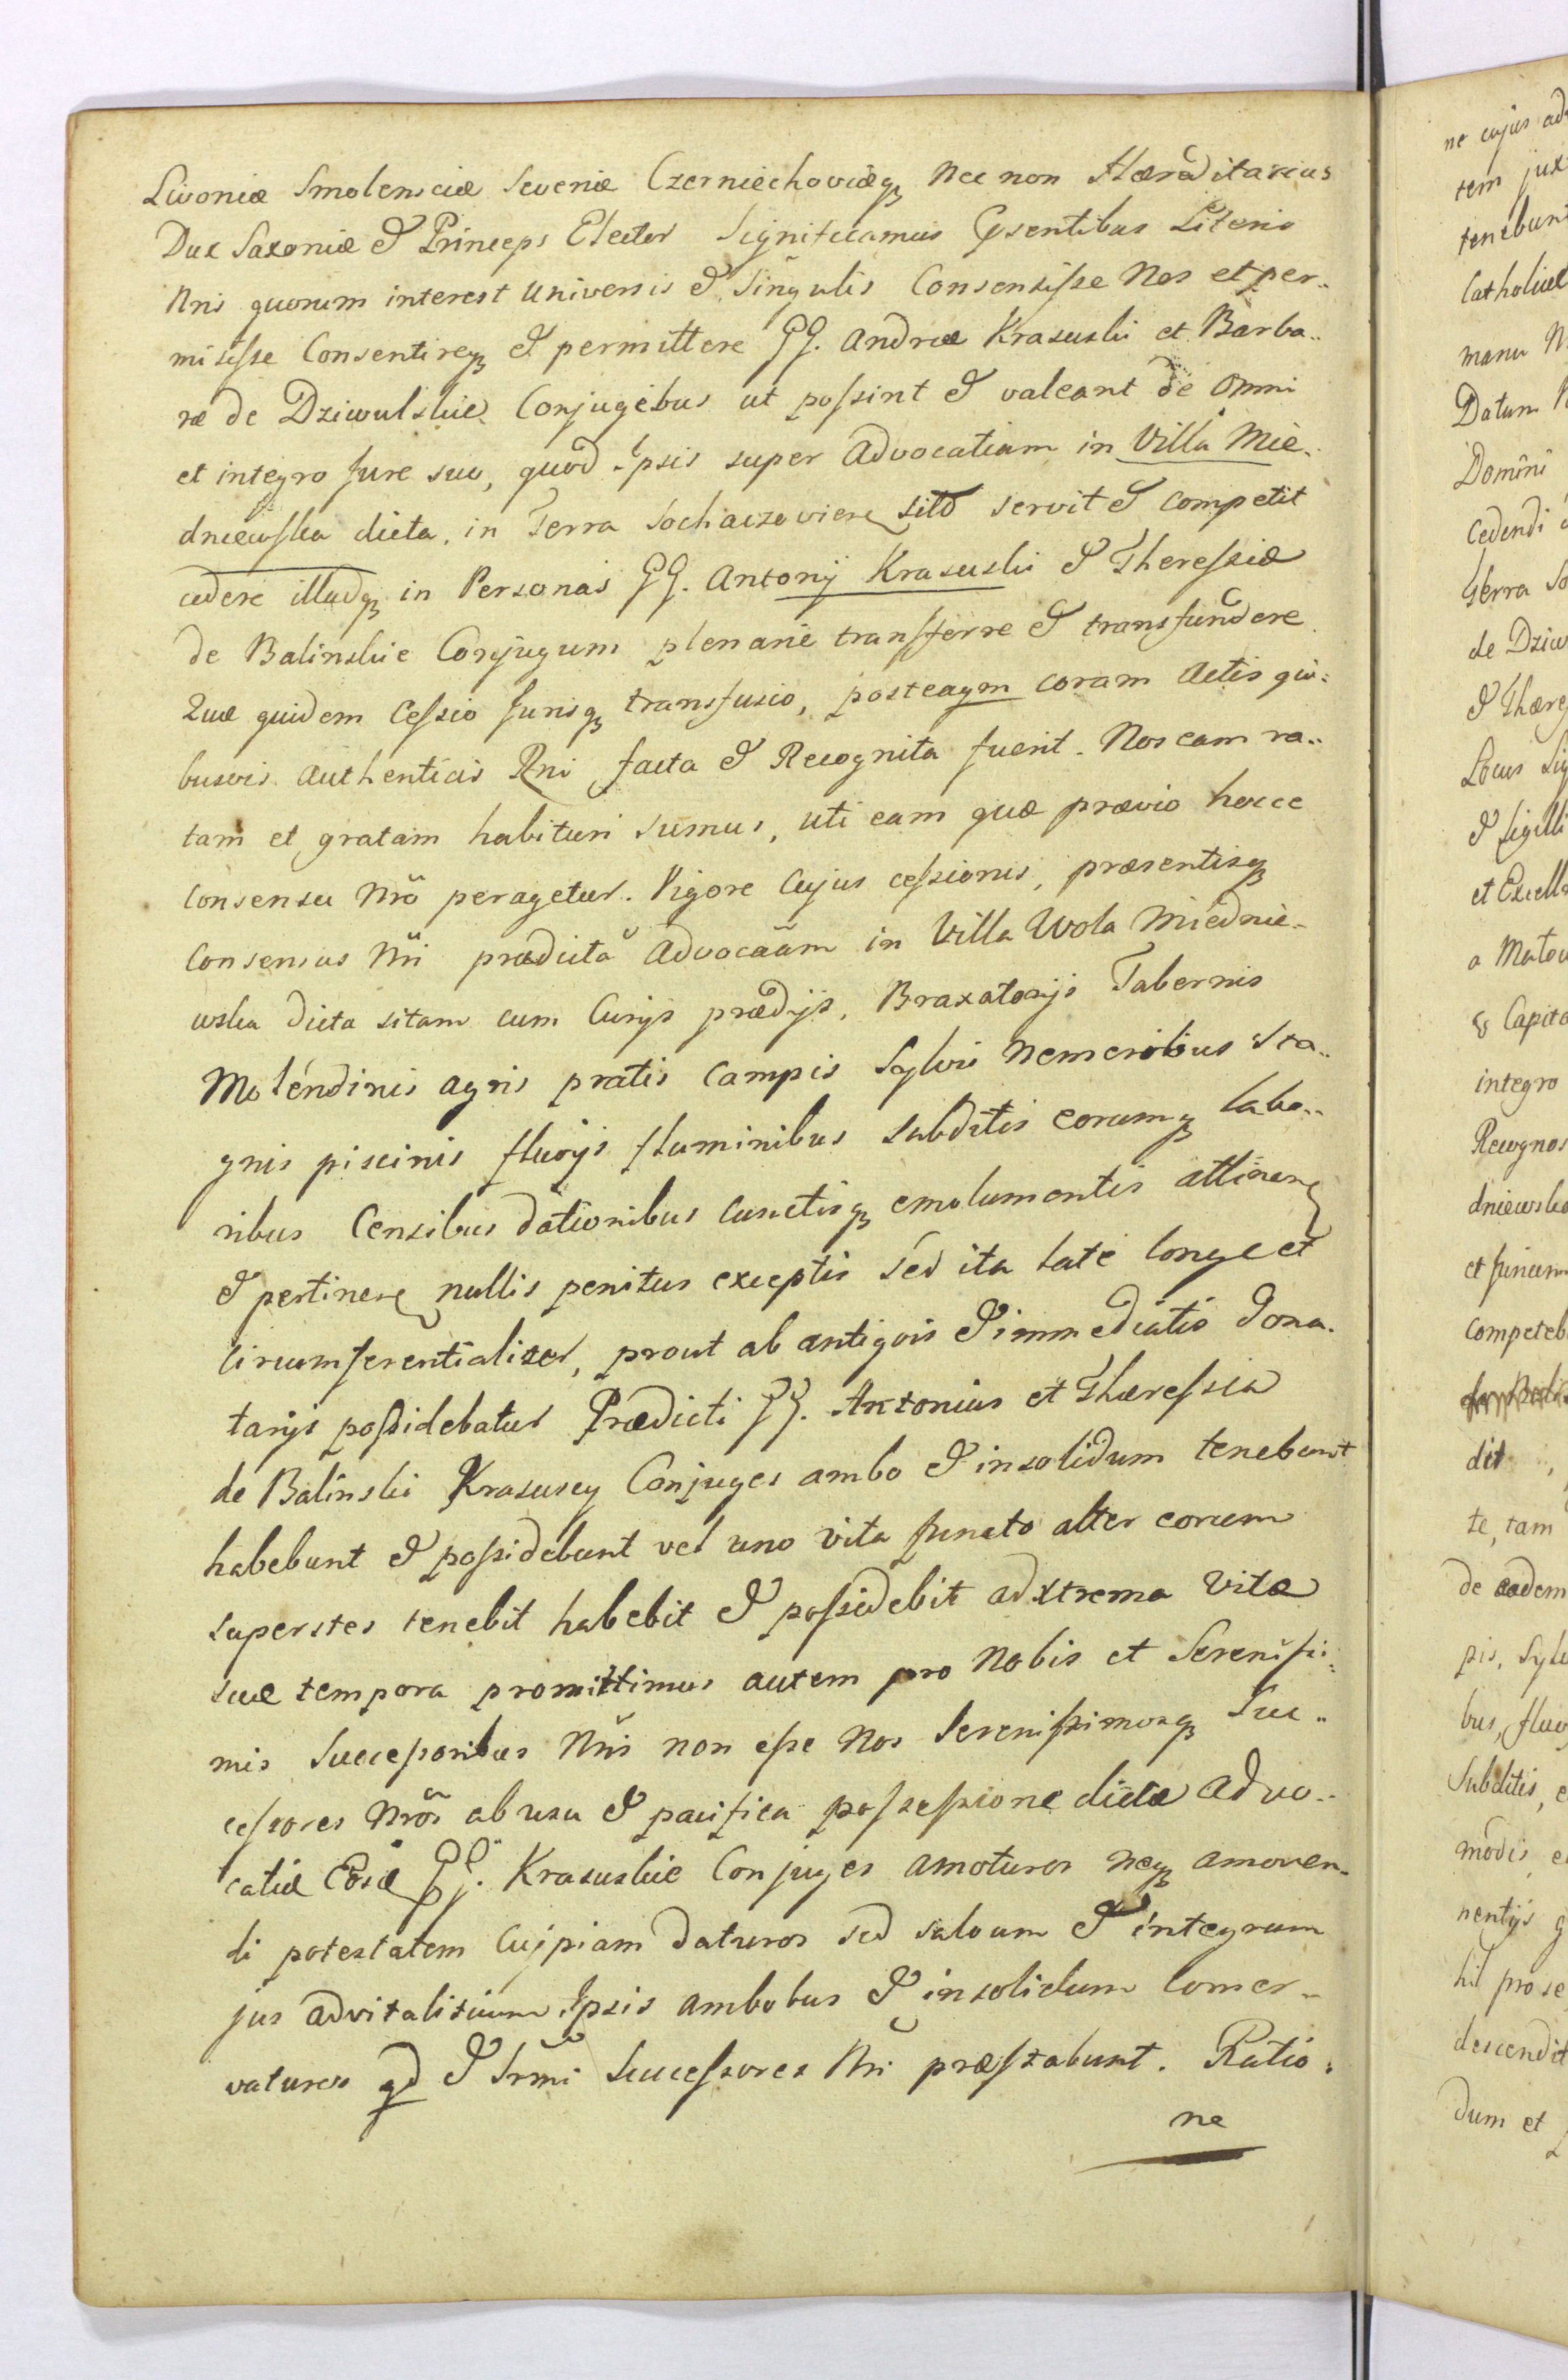 Livoniæ Smolensciæ Severiæ Czerniechoviæq₃ Nec non Hæreditarius
Dux Saxoniæ & Princeps Elector Significamus Pṡentibus Literis
Nris quorum interest Universis & Singulis Consensiſse Nos et per..
misiſse Consentireq₃ & permittere GG. Andreæ Krasuski et Barba..
ræ de Dziwulskie Conjugibus ut poſsint & valeant de Omni
et integro Jure suo, quod Ipsis super Advocatiam in Villa Mie..
dniewſka dicta, in Terra Sochaczovien sitō servit & competit
cedere illudq₃ in Personas GG. Antonij Krasuski & Thereſsiæ
de Balinskie Conjugum plenarie tranſferre & transfundere
Quæ quidem Ceſsio Jurisq₃ transfusio, posteaqm coram Actis qui:
busvis authenticis Rni facta & Recognita fuerit. Nos eam ra..
tam et gratam habituri sumus, uti eam quæ prævio hocce
Consensu Nrō peragetur. Vigore Cujus ceſsionis, præsentisq₃
Consensus Nri prædictā Advocaām in Villa Wola Miednie-
wska dicta sitam cum Curijs prædijs, Braxatorijs Tabernis
Molendinis agris pratis Campis Sylvis Nemoribus Sta..
gnis piscinis fluvijs fluminibus Subditis eorumq₃ labo..
ribus Censibus dationibus cunctisq₃ emolumentis attinen
& pertinen nullis penitus exceptis sed ita late longe et
circumferentialiter, prout ab antiquis & immediatis Dona.
tarijs poſsidebatur Prædicti GG. Antonius et Thæreſsia
de Balinski Krasuscy Conjuges ambo & insolidum tenebunt
habebunt & poſsidebunt vel uno vita functo alter eorum
superstes tenebit habebit & poſsidebit ad xtrema Vitæ
suæ tempora promittimus autem pro Nobis et Sereniſsi:
mis Succeſsoribus Nris non eſse Nos Sereniſsimosq₃ Suc..
ceſsores Nrōs ab usu & pacifica poſseſsione dictæ Advo..
catiæ Eosd GG. Krasuskie Conjuges amoturos neq₃ amoven-
di potestatem Cujpiam daturos sed salvum & integrum
jus advitalitium Ipsis ambobus & insolidum Conser-
vaturos qd & Srmi Succeſsores Nri præſtabunt. Ratio:
ne
ne cujus ad
tem jux
tenebunt
Catholicæ
manu N
Datum
Domini
Cedendi
Terra So
de Dziw
& Thære
Locus Sig
& Sigilli
et Excell
a
& Capita
integro
Recognos
dniewsk
et
Competeb
dit
te, tam
de eadem
pis, Sylv
bus, fluv
Subditis, e
modis e
nentijs
hil pro se
descendit
dum et